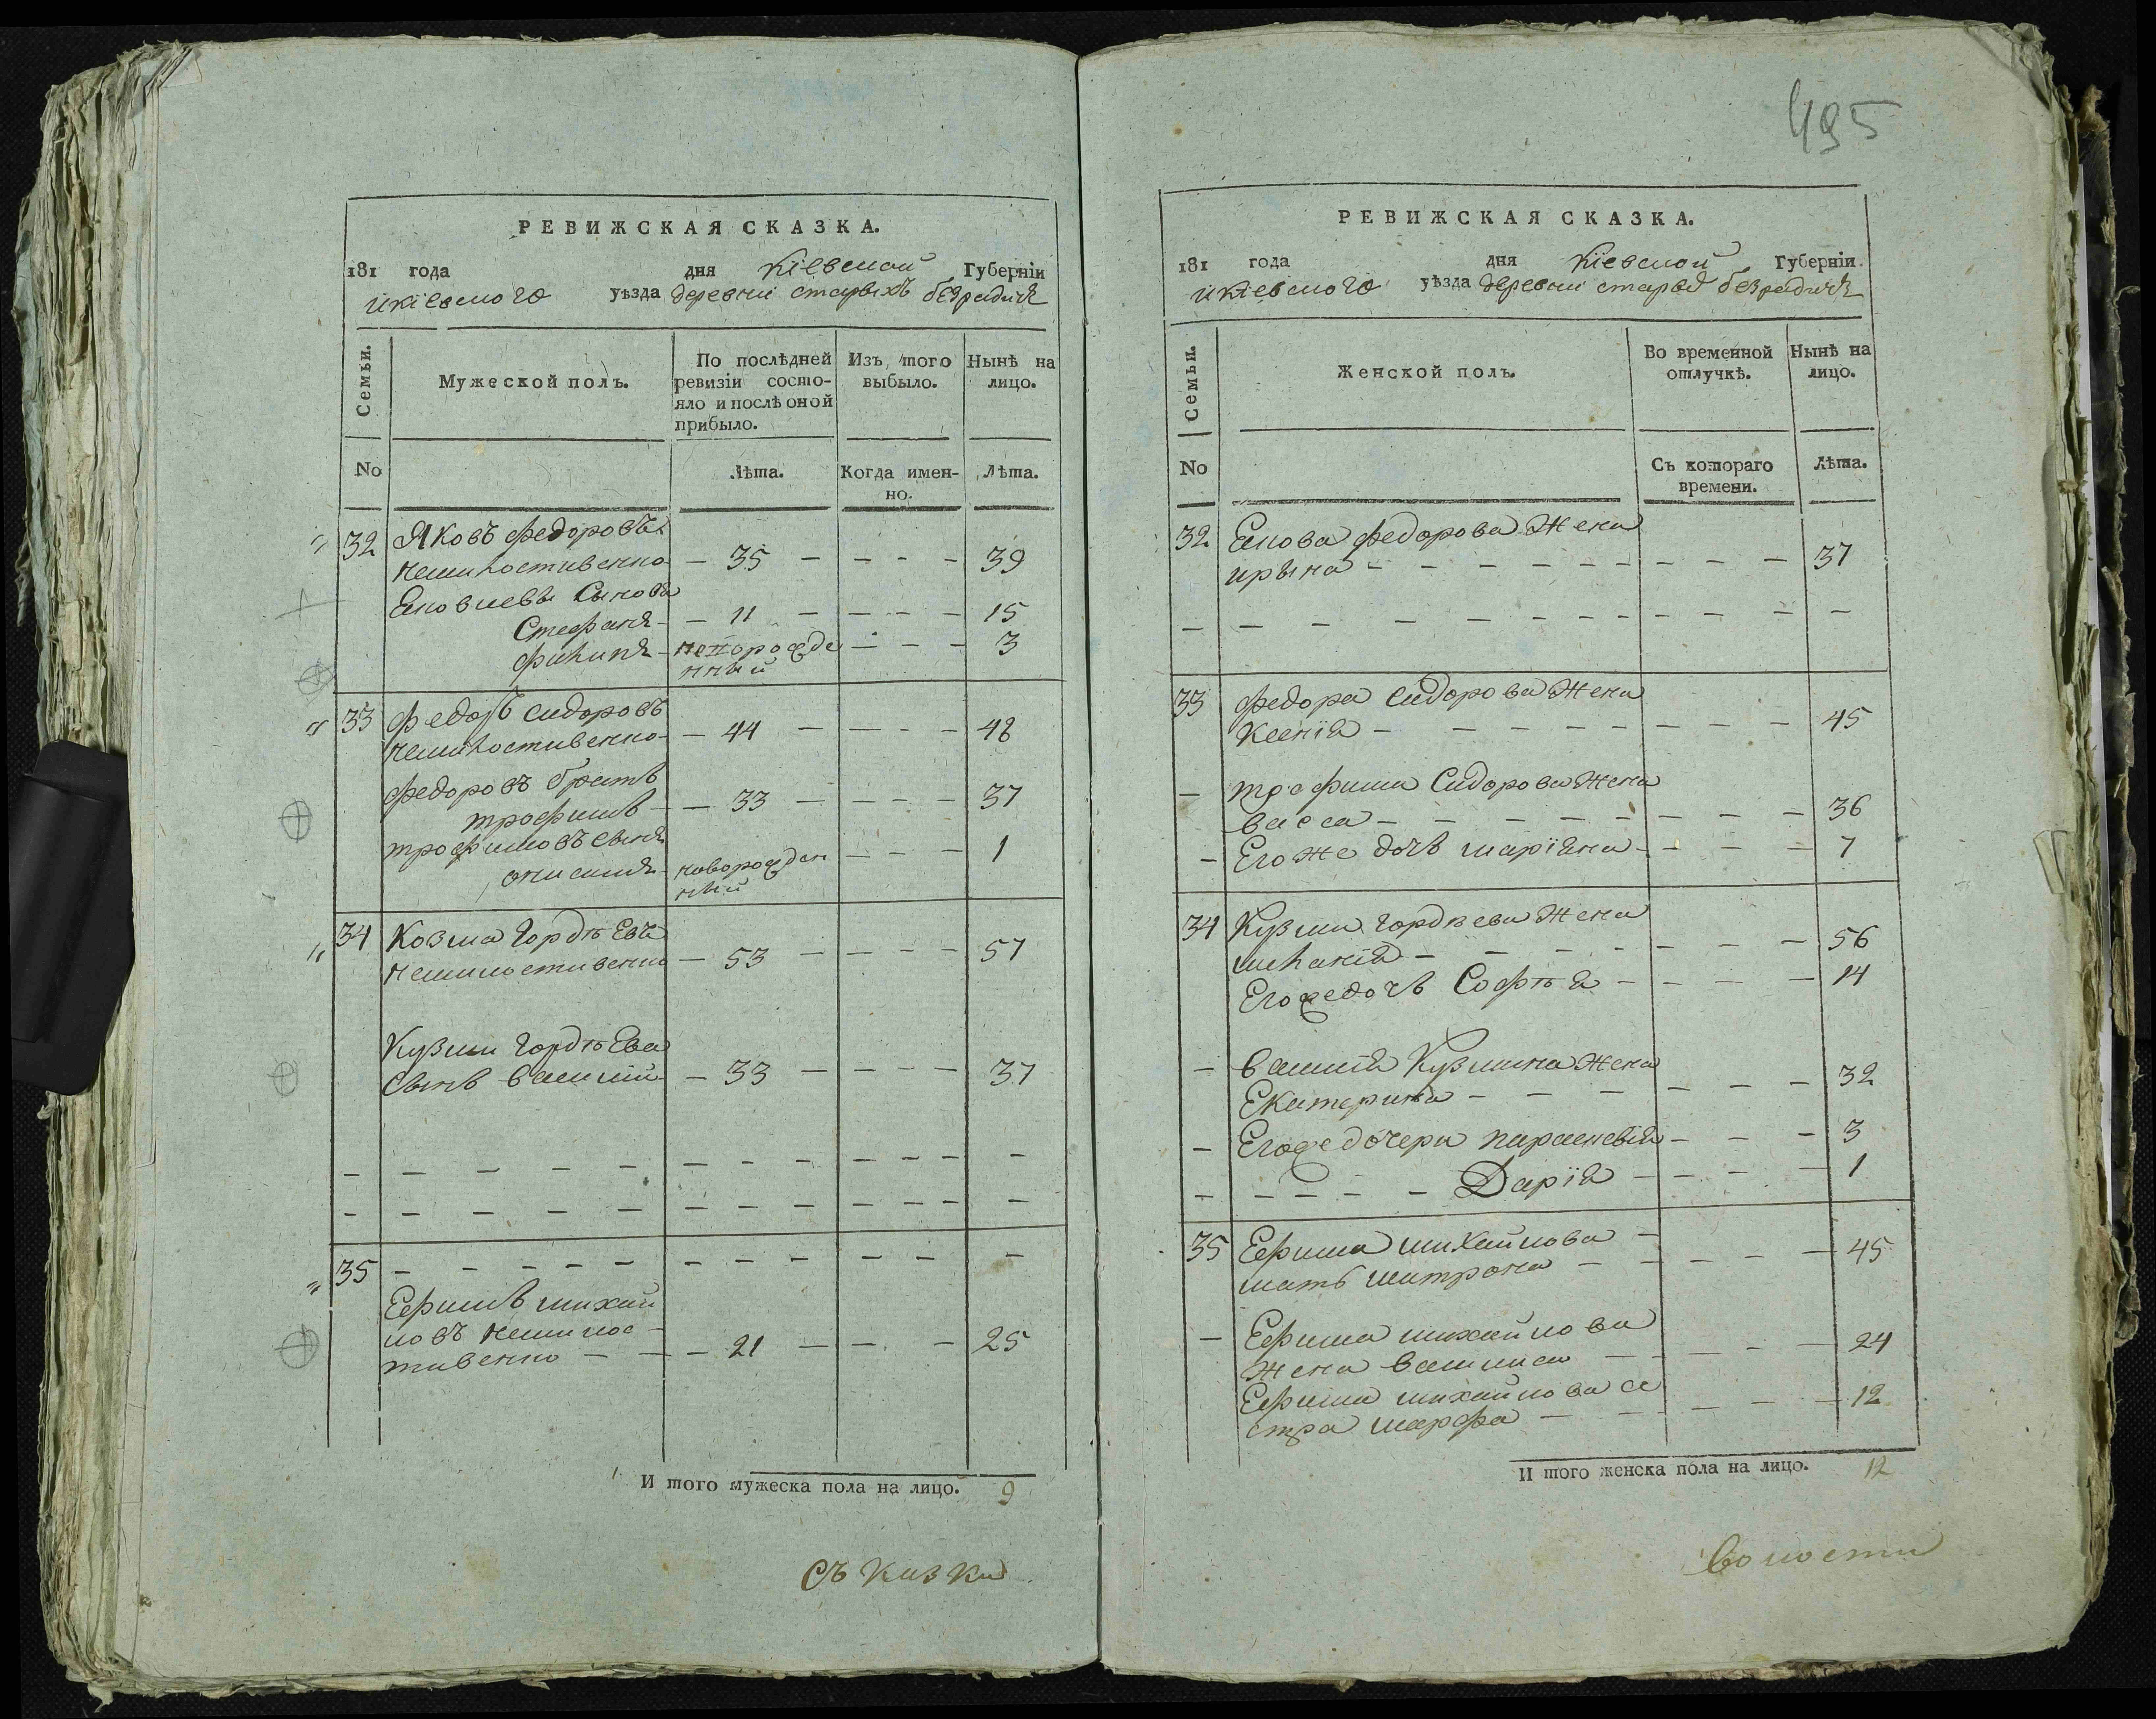 495
РЕВИЖСКАЯ СКАЗКА.
181 года дня Кіевской Губерніи
икіевского уѣзда деревни старыхъ безрадичъ
Семьи.
Мужеской полъ.
По послѣдней ревизіи состо-
яло и послѣ оной
прибыло.
Изъ того выбыло.
Нынѣ на лицо.
No
Лѣта.
Когда имен-
но.
Лѣта.
32 Яковъ федоровъ
немилостивенко - 35 - - - - 39
Яковлевы Сынова
Стефанъ - - 11 - - - - 15
филипъ - новорожде
нный - - - 3
33 федоръ сидоровъ
немилостивенко - 44 - - - - 48
федоровъ братъ
трофимъ - 33 - - - - 37
трофимовъ сынъ
онисимъ новорожден
ный - - - 1
34 Козма гордѣевъ
немилостивенко - 53 - - - - 57
Кузми гордѣева
сынъ василий - 33 - - - - 37
35
Ефимъ михай
ловъ немилос-
тивенко - - - 21 - - - 25
И того мужеска пола на лицо. 9
съказки
РЕВИЖСКАЯ СКАЗКА.
181 года дня Кіевской Губерніи.
икіевского уѣзда деревни старых безрадичъ
Семьи.
Женской полъ.
Во временной
отлучкѣ.
Нынѣ на
лицо.
No
Съ котораго
времени.
Лѣта.
32 Якова федорова жена
ирына - - - - - - - - 37
33 федора сидорова жена
Ксенія - - - - - - - - 45
- трофима Сидорова жена
васса - - - - - - - - 36
- Его же дочь маріяна - - - 7
34 Кузми гордѣева жена
меланія - - - - - - - - 56
Егоже дочь Софѣя - - - - 14
- василія Кузмина жена
Екатерина - - - - - - 32
- Егоже дочери парасковія - - - 3
- - - - - Дарія - - - - 1
35 Ефима михайлова -
мать митрона - - - - 45
- Ефима михайлова
жена василиса - - - - - 24
Ефима михайлова се
стра марфа - - - - - 12
И того женска пола на лицо. 12
волости